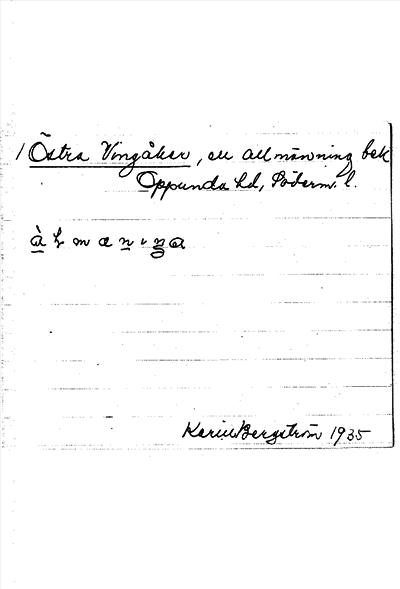 / Östra Vingåker, en allmänning bek
Oppunda hd, Söderm. l.
Karin Bergström 1935